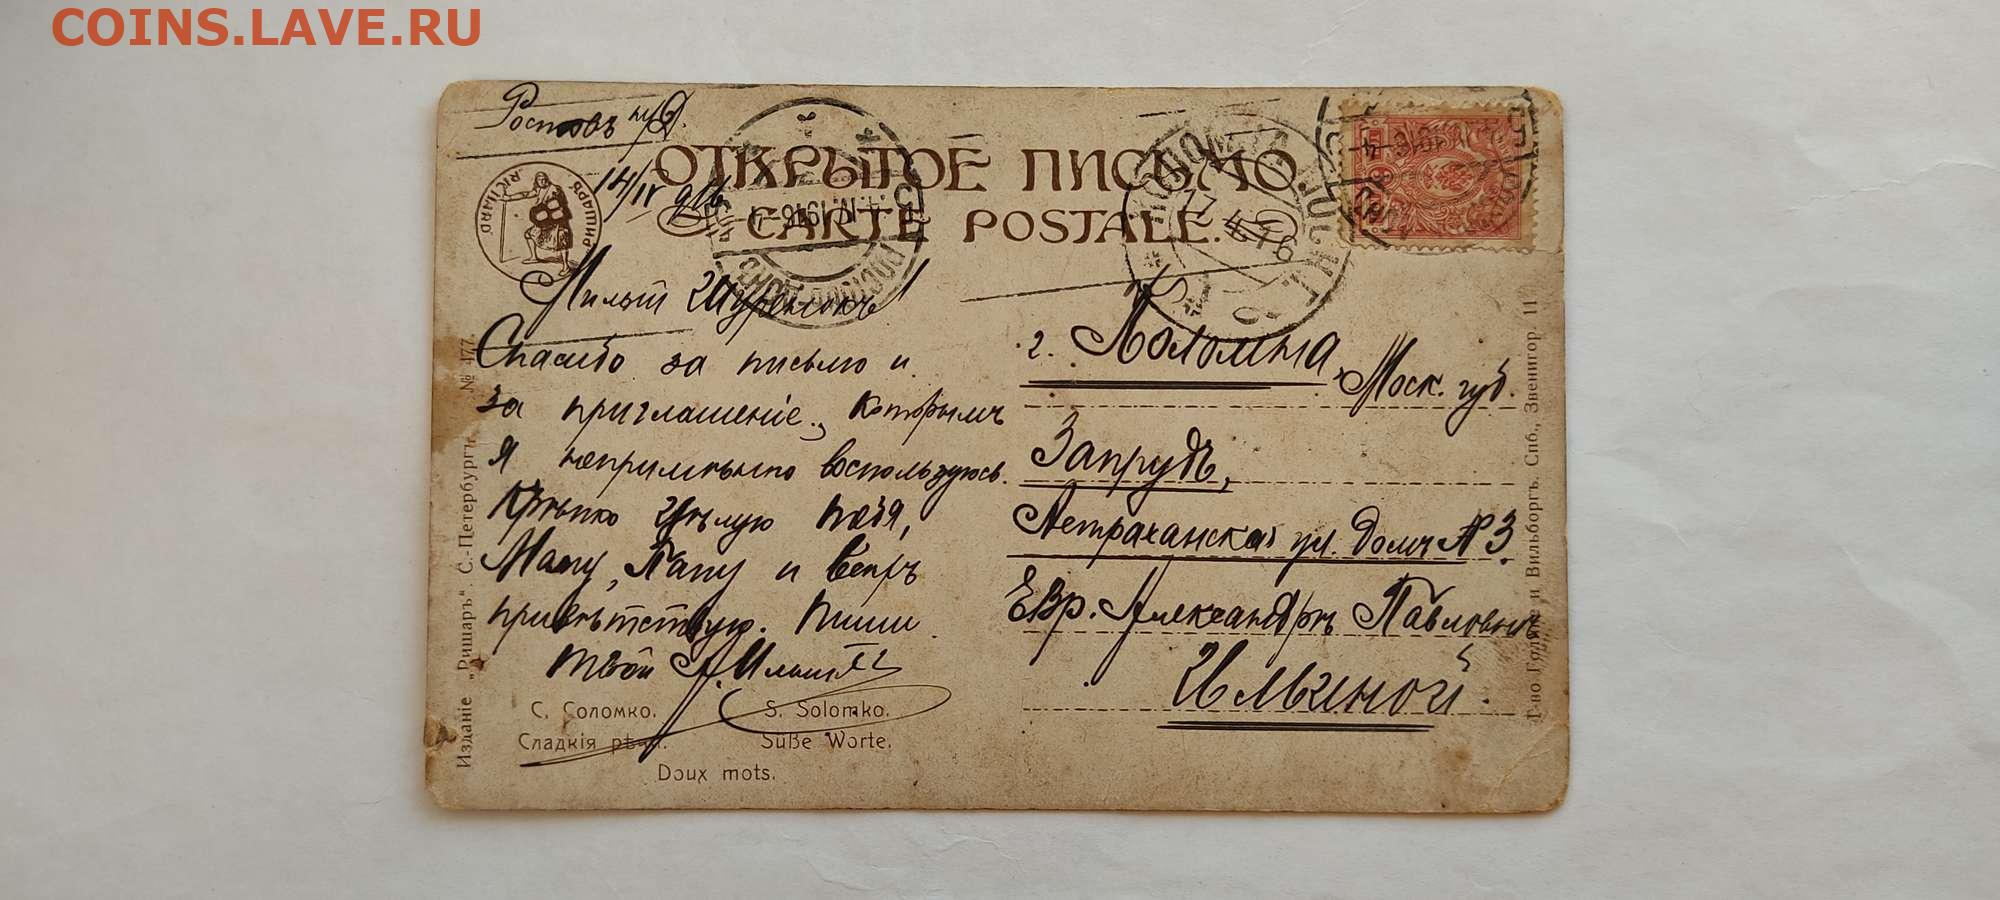 COINS.LAVE.RU
Ростовъ н/Д.
14/IV 916
ОТКРЫТОЕ ПИСЬМО.
CARTE POSTALE.
RICHARD РИШАРЪ
Милый Шуренокъ!
Спасибо за письмо и
за приглашеніе, которымъ
я непримѣнно воспользуюсь.
Крѣпко цѣлую тебя,
Маму, Папу и всѣхъ
привѣтствую. Пиши
твой А. Ильинъ
С. Соломко. S. Solomko.
Сладкія рѣчи. Süße Worte.
Doux mots.
г. Коломна,
Моск. губ.
Запрудъ,
Астраханская ул. домъ № 3
ЕВр. Александрѣ Павловнѣ
Ильиной.
Изданіе „Ришаръ“. С.-Петербургъ. № 477.
Т-во Голике и Вильборгъ. Спб., Звенигор. 11